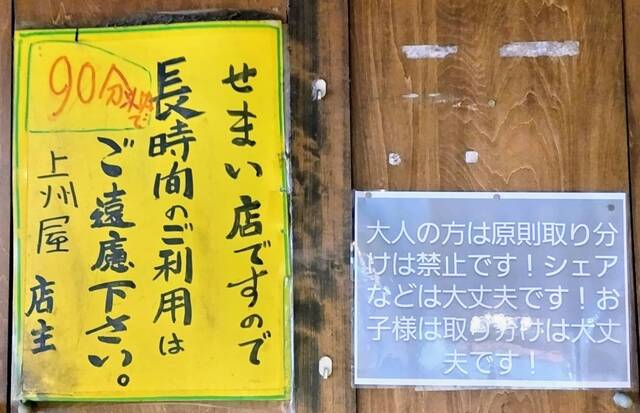 せまい店ですので
長時間のご利用は
ご遠慮下さい。
上州屋 店主
90分以内で
大人の方は原則取り分
けは禁止です！シェア
などは大丈夫です！お
子様は取り分けは大丈
夫です！